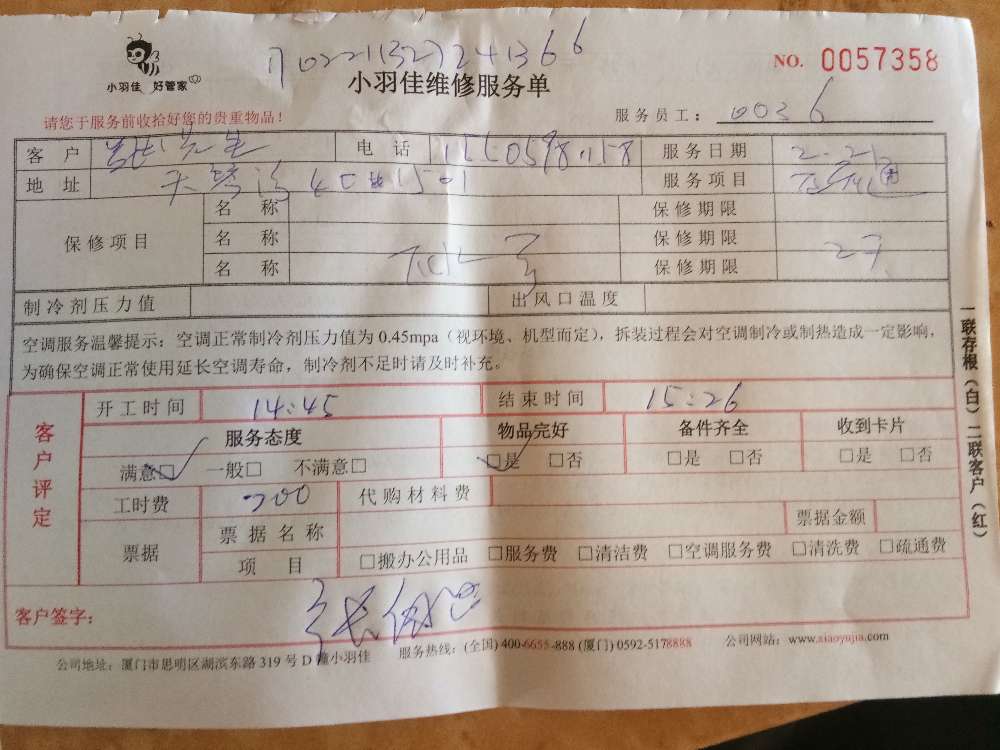 小羽佳 好管家
小羽佳维修服务单
NO. 0057358
请您于服务前收拾好您的贵重物品！
服务员工： 0036
客 户 张先生 电 话 服务日期 2.21
地 址 服务项目
保修项目
名 称 保修期限
名 称 保修期限
名 称 保修期限
制冷剂压力值 出风口温度
空调服务温馨提示：空调正常制冷剂压力值为 0.45mpa（视环境、机型而定），拆装过程会对空调制冷或制热造成一定影响，
为确保空调正常使用延长空调寿命，制冷剂不足时请及时补充。
客户评定
开工时间 14:45 结束时间 15:26
服务态度 物品完好 备件齐全 收到卡片
满意□ 一般□ 不满意□ □是 □否 □是 □否 □是 □否
工时费 200 代购材料费
票据 票据名称 票据金额
项 目 □搬办公用品 □服务费 □清洁费 □空调服务费 □清洗费 □疏通费
客户签字：
公司地址：厦门市思明区湖滨东路 319 号 D 幢小羽佳 服务热线：(全国) 400-6655-888 (厦门) 0592-5178888 公司网站：www.xiaoyujia.com
一联存根（白）二联客户（红）